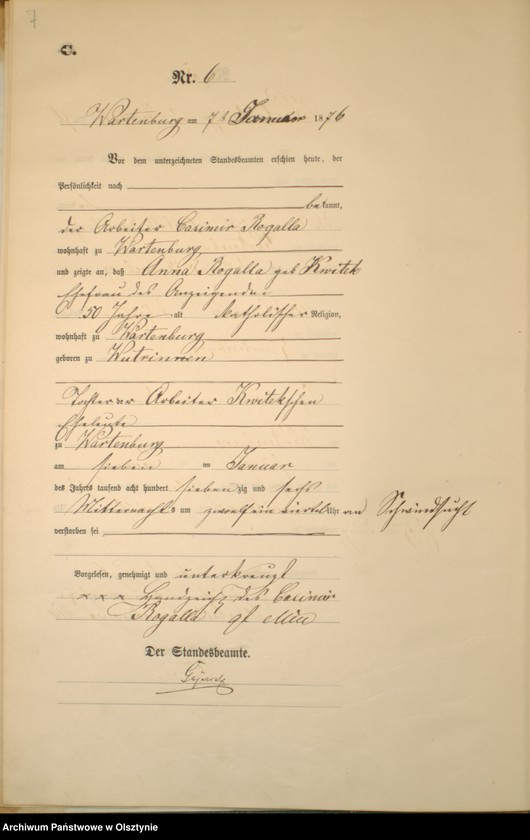 7
C.
Nr. 6
Wartenburg am 7t Januar 1876
Vor dem unterzeichneten Standesbeamten erschien heute, der
Persönlichkeit nach
bekannt,
der Arbeiter Casimir Rogalla
wohnhaft zu Wartenburg
und zeigte an, daß Anna Rogalla geb Kwitek
Ehefrau des Anzeigenden
50 Jahre alt Katholischer Religion,
wohnhaft zu Wartenburg
geboren zu Wutrinnen
Tochter der Arbeiter Kwitekschen
Eheleute
zu Wartenburg
am sieben im Januar
des Jahres tausend acht hundert sieben zig und sechs
Mitternachts um zwoelf ein viertel Uhr an Schwindsucht
verstorben sei
Vorgelesen, genehmigt und unterkreuzt
x x x Handzeich des Casimir
Rogalla
Der Standesbeamte.
Archiwum Państwowe w Olsztynie